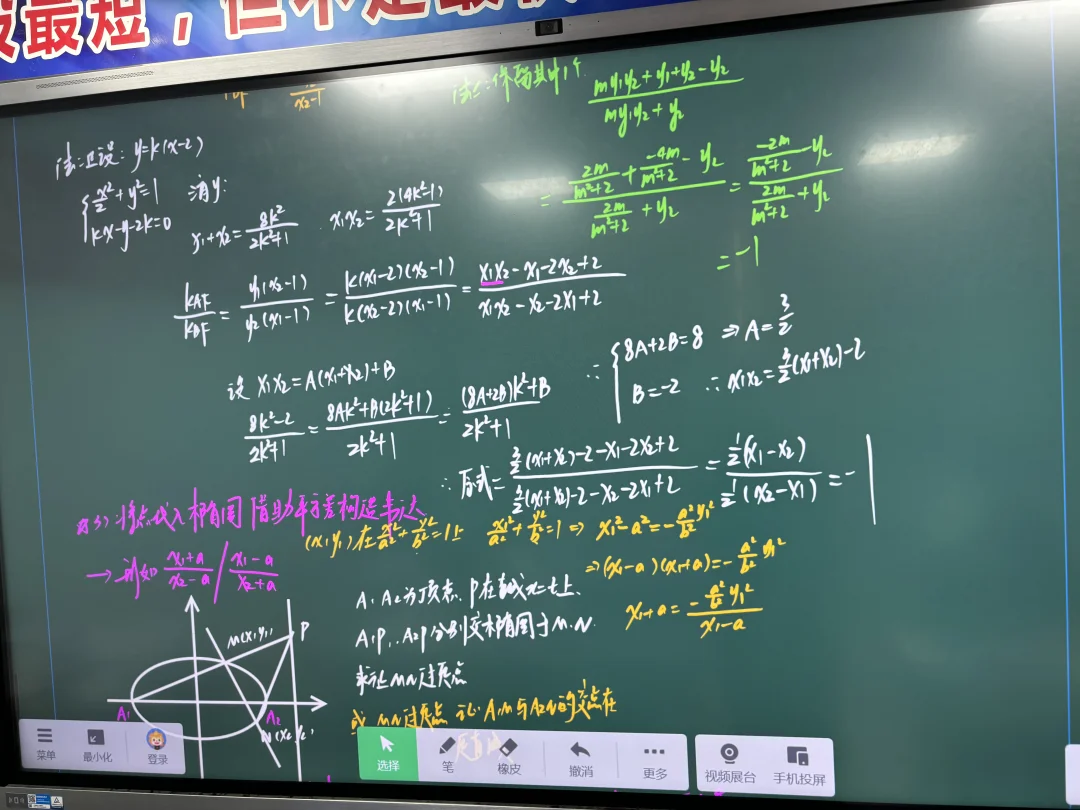 最短，但不是最
法二：保留其中1个 \frac{my_1y_2+y_1+y_2-y_2}{my_1y_2+y_2}
= \frac{\frac{2m}{m^2+2}+\frac{-4m}{m^2+2}-y_2}{\frac{2m}{m^2+2}+y_2} = \frac{\frac{-2m}{m^2+2}-y_2}{\frac{2m}{m^2+2}+y_2}
= -1
x_2-1
设: y=k(x-2)
{ \frac{x^2}{2}+y^2=1 消y:
kx-y-2k=0 x_1+x_2=\frac{8k^2}{2k^2+1} x_1x_2=\frac{2(4k^2-1)}{2k^2+1}
\frac{k_{AF}}{k_{BF}}=\frac{y_1(x_2-1)}{y_2(x_1-1)}=\frac{k(x_1-2)(x_2-1)}{k(x_2-2)(x_1-1)}=\frac{x_1x_2-x_1-2x_2+2}{x_1x_2-x_2-2x_1+2}
设 x_1x_2=A(x_1+x_2)+B
\frac{8k^2-2}{2k^2+1}=\frac{8Ak^2+B(2k^2+1)}{2k^2+1}=\frac{(8A+2B)k^2+B}{2k^2+1}
∴ { 8A+2B=8 ⇒ A=\frac{3}{2}
B=-2 ∴ x_1x_2=\frac{3}{2}(x_1+x_2)-2
∴ 原式=\frac{\frac{3}{2}(x_1+x_2)-2-x_1-2x_2+2}{\frac{3}{2}(x_1+x_2)-2-x_2-2x_1+2}=\frac{\frac{1}{2}(x_1-x_2)}{\frac{1}{2}(x_2-x_1)}=-1
将点代入椭圆借助平方差构造表达
→ 例如 \frac{x_1+a}{x_2-a} / \frac{x_1-a}{x_2+a}
(x_1,y_1)在\frac{x^2}{a^2}+\frac{y^2}{b^2}=1上 \frac{x_1^2}{a^2}+\frac{y_1^2}{b^2}=1 ⇒ x_1^2-a^2=-\frac{a^2}{b^2}y_1^2
⇒(x_1-a)(x_1+a)=-\frac{a^2}{b^2}y_1^2
x_1+a=\frac{-\frac{a^2}{b^2}y_1^2}{x_1-a}
A_1 A_2为顶点、P在直线x=t上、
A_1P、A_2P分别交椭圆于M、N.
求证MN过定点
或 MN过定点 证: A_1M与A_2N的交点在
定直线
M(x_1y_1) P
A_1 A_2
N(x_2y_2)
菜单 最小化 登录 选择 笔 橡皮 撤消 更多 视频展台 手机投屏